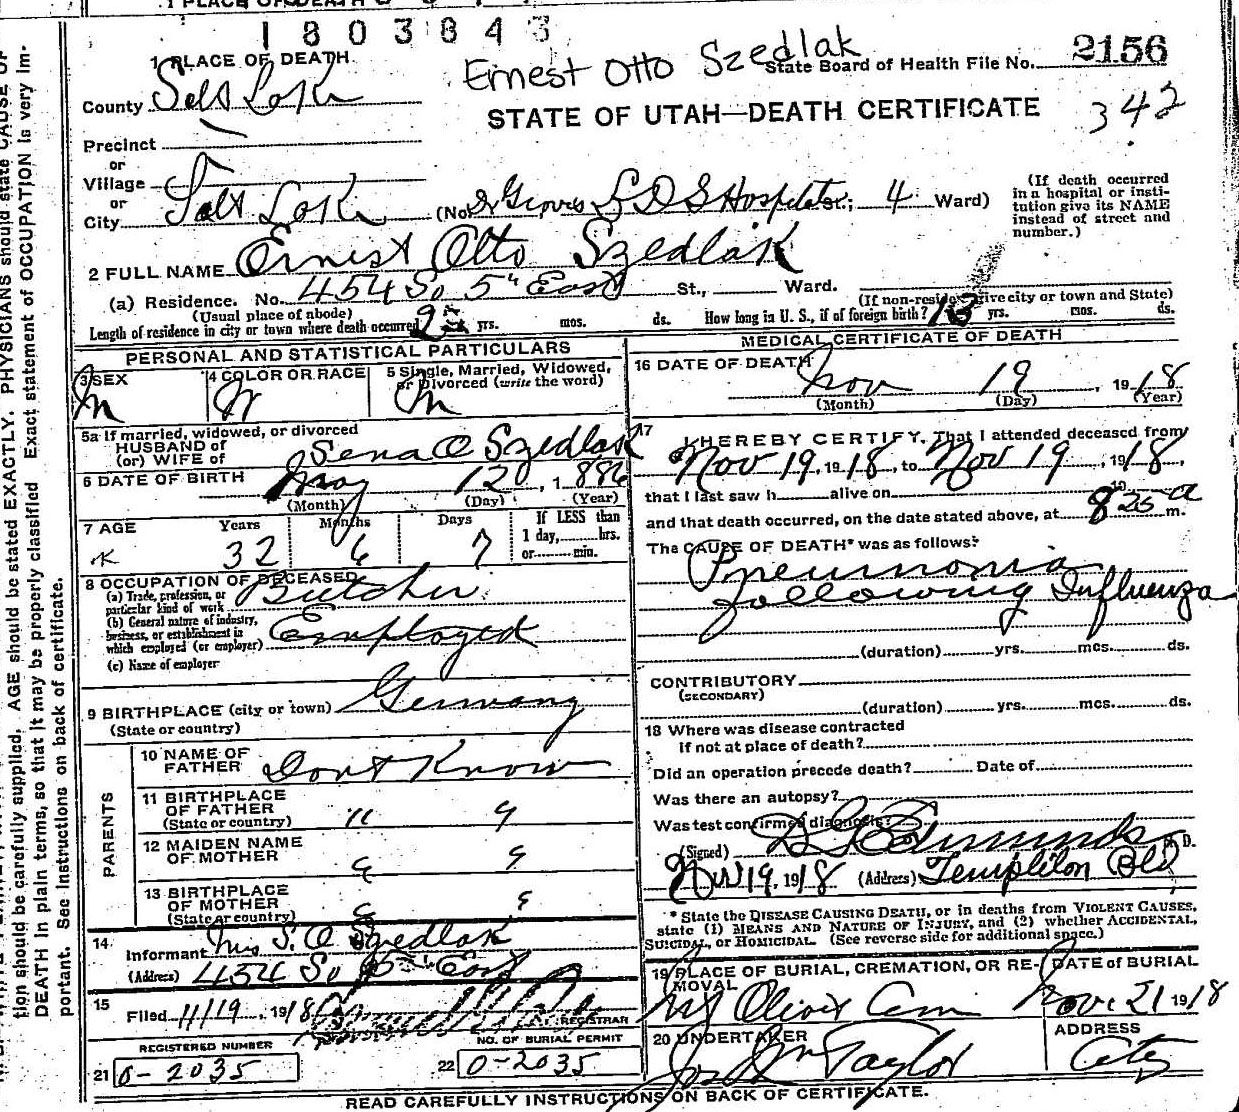 1 PLACE OF DEATH
1803843
1 PLACE OF DEATH
Ernest Otto Szedlak
State Board of Health File No. 2156
County Salt Lake
STATE OF UTAH—DEATH CERTIFICATE
342
Precinct
or
Village
or
City Salt Lake (No. Dr Groves LDS Hospital St.; 4 Ward)
(If death occurred in a hospital or insti-
tution give its NAME
instead of street and
number.)
2 FULL NAME Ernest Otto Szedlak
(a) Residence. No. 454 So 5" East St., Ward.
(Usual place of abode) (If non-resident give city or town and State)
Length of residence in city or town where death occurred yrs. mos. ds. How long in U. S., if of foreign birth? 13 yrs. mos. ds.
PERSONAL AND STATISTICAL PARTICULARS
3 SEX M
4 COLOR OR RACE W
5 Single, Married, Widowed,
or Divorced (write the word) M
5a If married, widowed, or divorced
HUSBAND of
(or) WIFE of Sena O Szedlak
6 DATE OF BIRTH May 12, 1886
(Month) (Day) (Year)
7 AGE Years Months Days If LESS than
1 day, hrs.
32 6 7 or min.
8 OCCUPATION OF DECEASED
(a) Trade, profession, or
particular kind of work Butcher
(b) General nature of industry,
business, or establishment in
which employed (or employer) Employed
(c) Name of employer
9 BIRTHPLACE (city or town) Germany
(State or country)
PARENTS
10 NAME OF
FATHER Dont Know
11 BIRTHPLACE
OF FATHER
(State or country) " "
12 MAIDEN NAME
OF MOTHER " "
13 BIRTHPLACE
OF MOTHER
(State or country) " "
14
Informant Mrs S. O Szedlak
(Address) 454 So 5" East
15
Filed 11/19, 1918
REGISTRAR
REGISTERED NUMBER NO. OF BURIAL PERMIT
21 0-2035 22 0-2035
MEDICAL CERTIFICATE OF DEATH
16 DATE OF DEATH Nov 19, 1918
(Month) (Day) (Year)
17
I HEREBY CERTIFY, That I attended deceased from
Nov 19, 1918, to Nov 19, 1918,
that I last saw h alive on 19
and that death occurred, on the date stated above, at 8 25 a m.
The CAUSE OF DEATH* was as follows:
Pneumonia
following Influenza
(duration) yrs. mos. ds.
CONTRIBUTORY
(SECONDARY)
(duration) yrs. mos. ds.
18 Where was disease contracted
if not at place of death?
Did an operation precede death? Date of
Was there an autopsy?
Was test confirmed diagnosis?
(Signed) Edmunds M. D.
Nov 19, 1918 (Address) Templeton Bld
* State the DISEASE CAUSING DEATH, or in deaths from VIOLENT CAUSES,
state (1) MEANS AND NATURE OF INJURY, and (2) whether ACCIDENTAL,
SUICIDAL, or HOMICIDAL. (See reverse side for additional space.)
19 PLACE OF BURIAL, CREMATION, OR RE-
MOVAL
Mt Olivet Cem
DATE of BURIAL
Nov. 21 1918
20 UNDERTAKER
Jos Wm Taylor
ADDRESS
City
READ CAREFULLY INSTRUCTIONS ON BACK OF CERTIFICATE.
tion should be carefully supplied. AGE should be stated EXACTLY. PHYSICIANS should state CAUSE OF
DEATH in plain terms, so that it may be properly classified. Exact statement of OCCUPATION is very im-
portant. See Instructions on back of certificate.